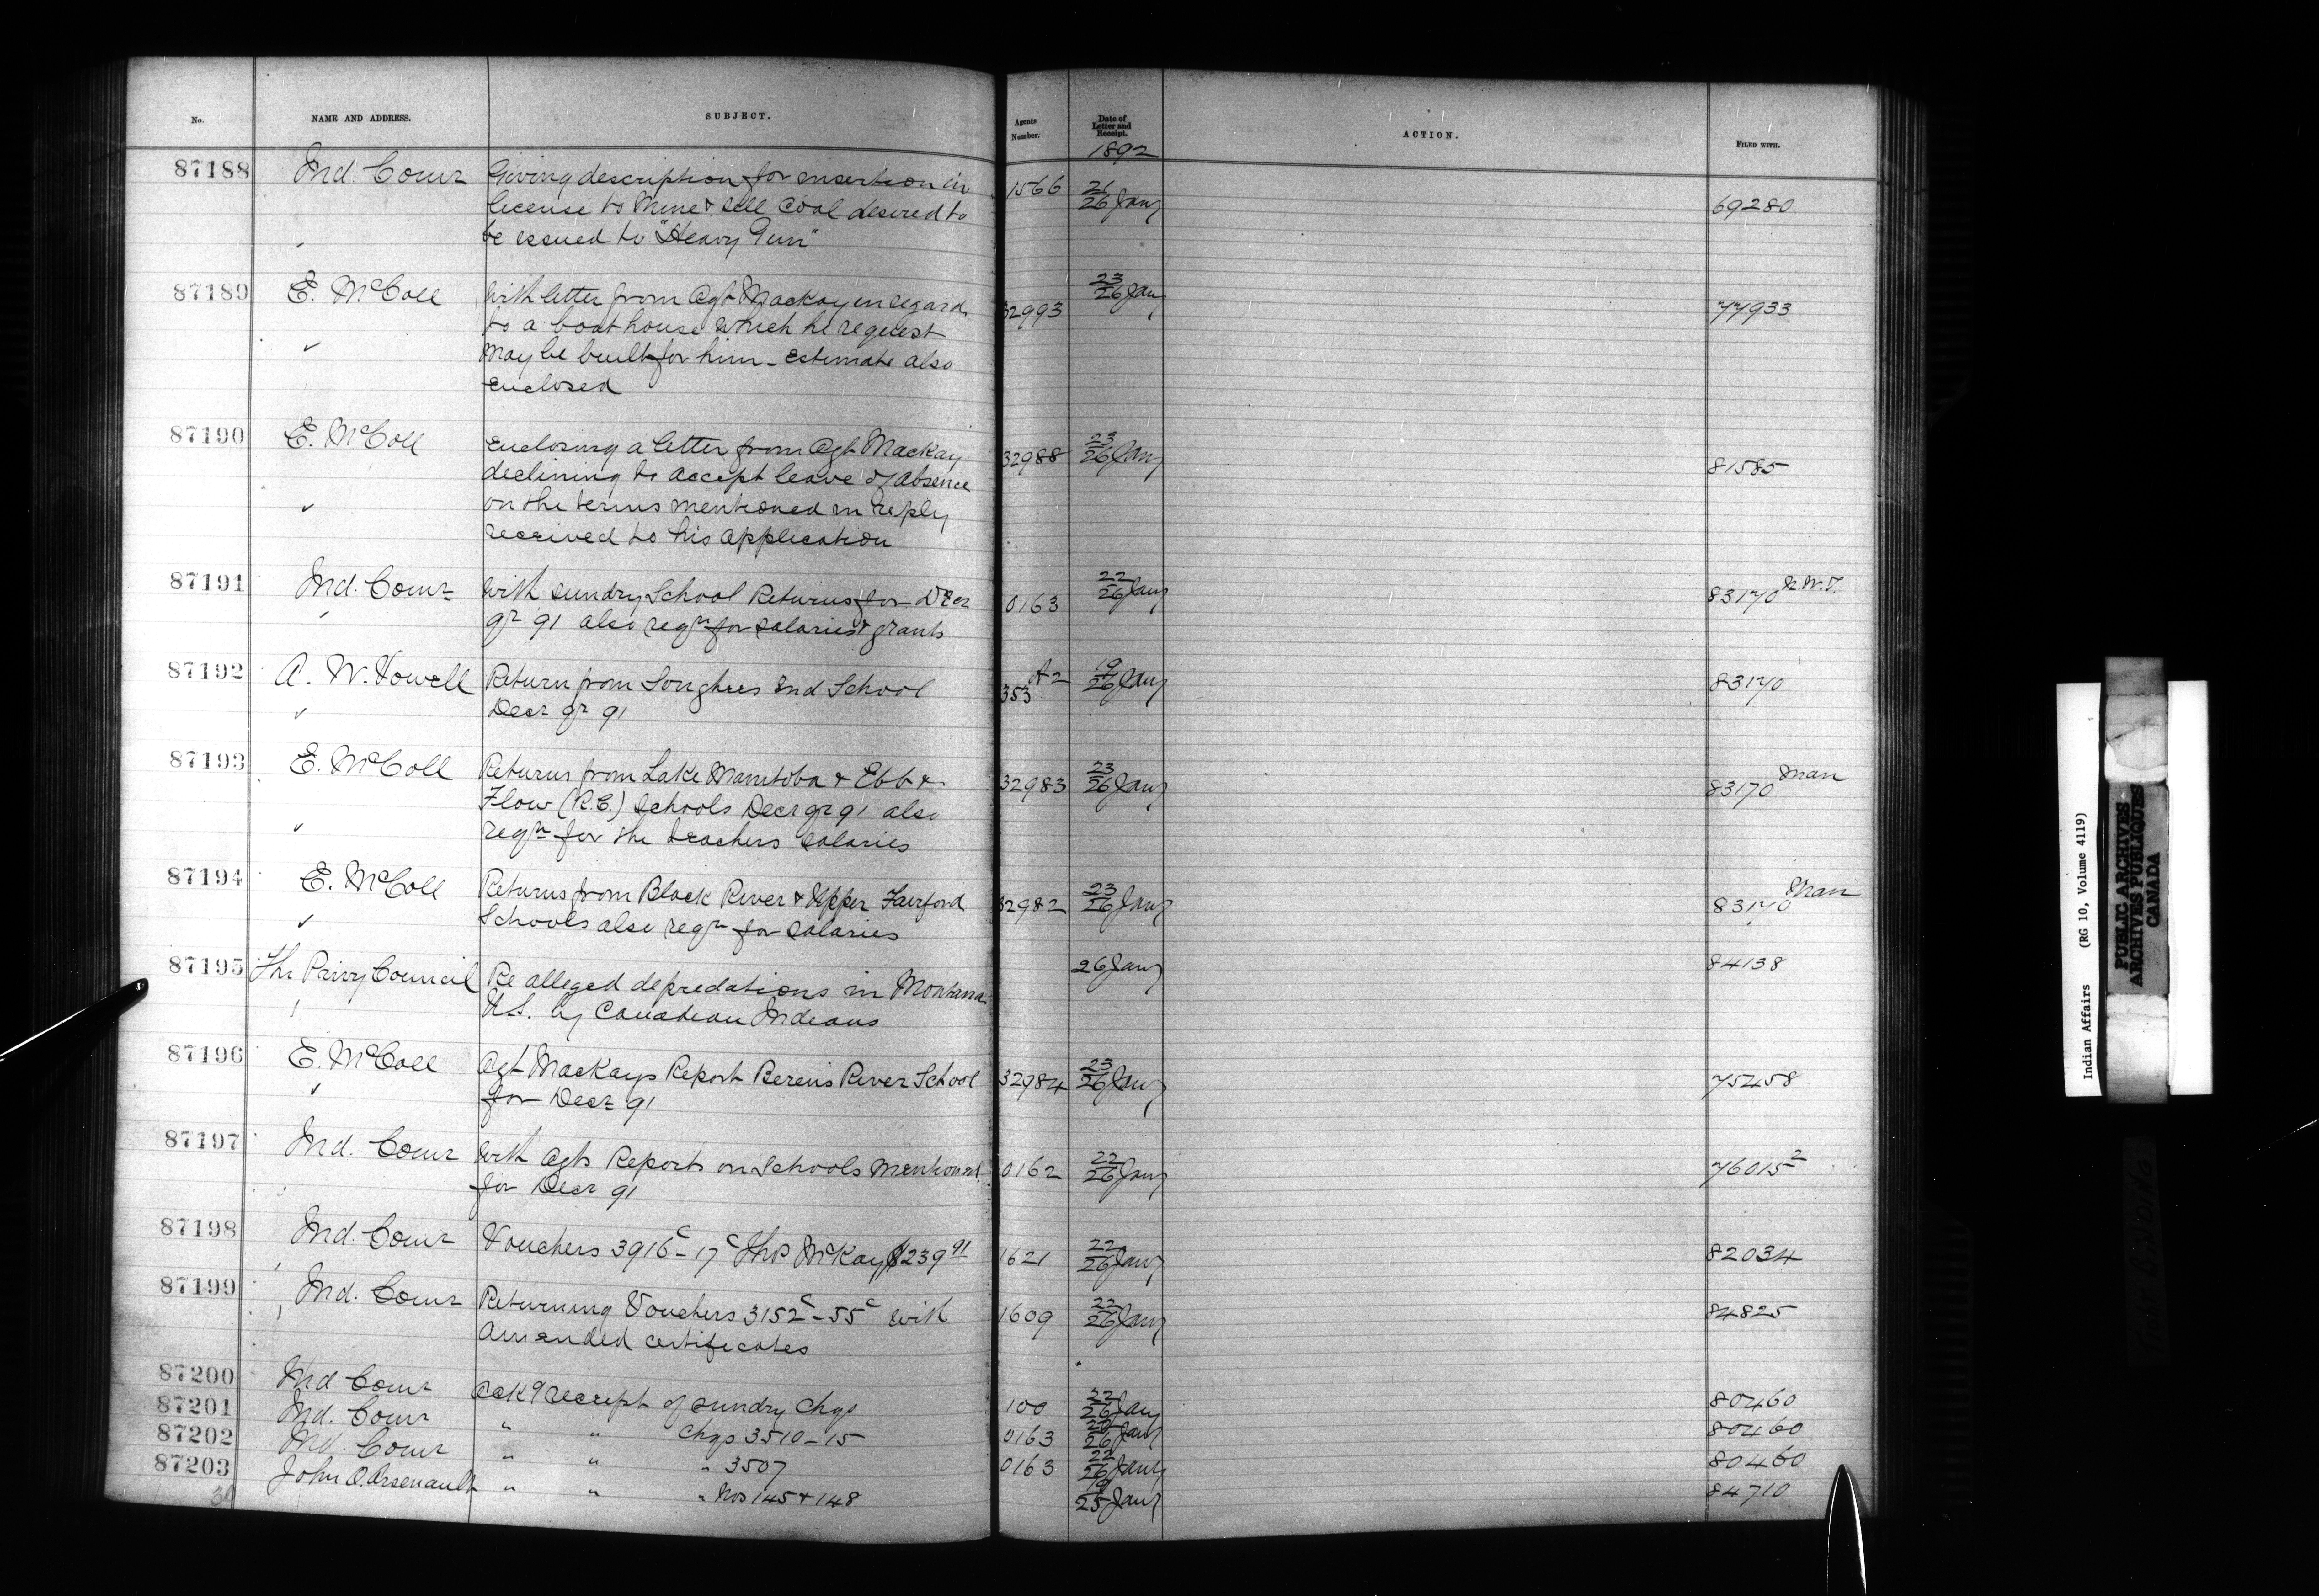 No.
NAME AND ADDRESS.
SUBJECT.
Agents Number.
Date of Letter and Receipt.
1892
ACTION.
FILED WITH.
87188 Ind. Comr Giving description for insertion in 1566 26 Jany 69280
license to mine & sell coal desired to
be issued to "Heavy Gun"
87189 E. McColl With letter from Agt Mackay in regard 32993 23/26 Jany 77933
to a boat house which he request
may be built for him - Estimate also
enclosed
87190 E. McColl Enclosing a letter from Agt Mackay 32988 23/26 Jany 81585
declining to accept leave of absence
on the terms mentioned in reply
received to his application
87191 Ind. Comr With sundry School Returns for Decr 0163 22/26 Jany 83170 N.W.T.
qr 91 also reqn for salaries & grants
87192 A. W. Vowell Return from Songhees Ind School A2 353 19/26 Jany 83170
Decr qr 91
87193 E. McColl Returns from Lake Manitoba & Ebb & 32983 23/26 Jany 83170 Man
Flow (R.C.) Schools Decr qr 91 also
reqn for the teachers salaries
87194 E. McColl Returns from Black River & Upper Fairford 32982 23/26 Jany 83170 Man
Schools also reqn for salaries
87195 The Privy Council Re alleged depredations in Montana 26 Jany 84138
U.S. by Canadian Indians
87196 E. McColl Agt Mackays Report Berens River School 32984 23/26 Jany 75458
for Decr 91
87197 Ind. Comr With Agts Reports on Schools mentioned 0162 22/26 Jany 76015 2
for Decr 91
87198 Ind. Comr Vouchers 3916c - 17c Thos McKay $239 91 1621 22/26 Jany 82034
87199 Ind. Comr Returning Vouchers 3152c - 55c with 1609 22/26 Jany 84825
Amended certificates
87200 Ind Comr Ackg receipt of sundry Chqs 100 22/26 Jany 80460
87201 Ind. Comr " " Chqs 3510-15 0163 26 Jany 80460
87202 Ind. Comr " " " 3507 0163 22/26 Jany 80460
87203 John O. Arsenault " " " Nos 145 & 148 19/25 Jany 84710
Indian Affairs (RG 10, Volume 4119)
PUBLIC ARCHIVES
ARCHIVES PUBLIQUES
CANADA